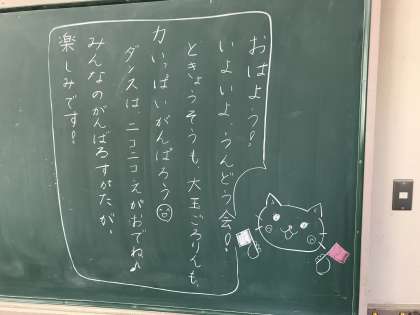 おはよう!
いよいようんどう会!
ときょうそうも、大玉ごろりんも、
力いっぱいがんばろう
ダンスは、ニコニコえがおでね♪
みんなのがんばるすがたが、
楽しみです!